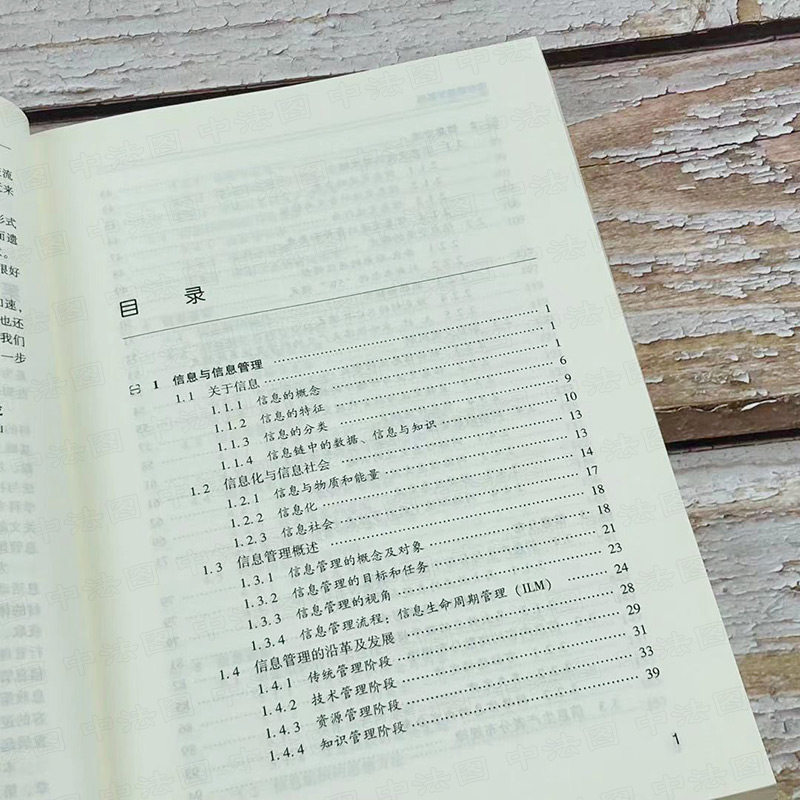 流
来
形式
而遗
很好
加速，
也还
我们
一步
目 录
1 信息与信息管理 …… 1
1.1 关于信息 …… 1
1.1.1 信息的概念 …… 1
1.1.2 信息的特征 …… 6
1.1.3 信息的分类 …… 9
1.1.4 信息链中的数据、信息与知识 …… 10
1.2 信息化与信息社会 …… 13
1.2.1 信息与物质和能量 …… 13
1.2.2 信息化 …… 14
1.2.3 信息社会 …… 17
1.3 信息管理概述 …… 18
1.3.1 信息管理的概念及对象 …… 18
1.3.2 信息管理的目标和任务 …… 21
1.3.3 信息管理的视角 …… 23
1.3.4 信息管理流程：信息生命周期管理（ILM） …… 24
1.4 信息管理的沿革及发展 …… 28
1.4.1 传统管理阶段 …… 29
1.4.2 技术管理阶段 …… 31
1.4.3 资源管理阶段 …… 33
1.4.4 知识管理阶段 …… 39
1
中法图